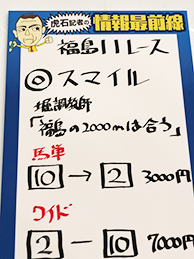 虎石記者の
情報最前線
福島11レース
◎スマイル
堀調教師
「福島の2000mは合う」
馬単
10→2 3000円
ワイド
2－10 7000円